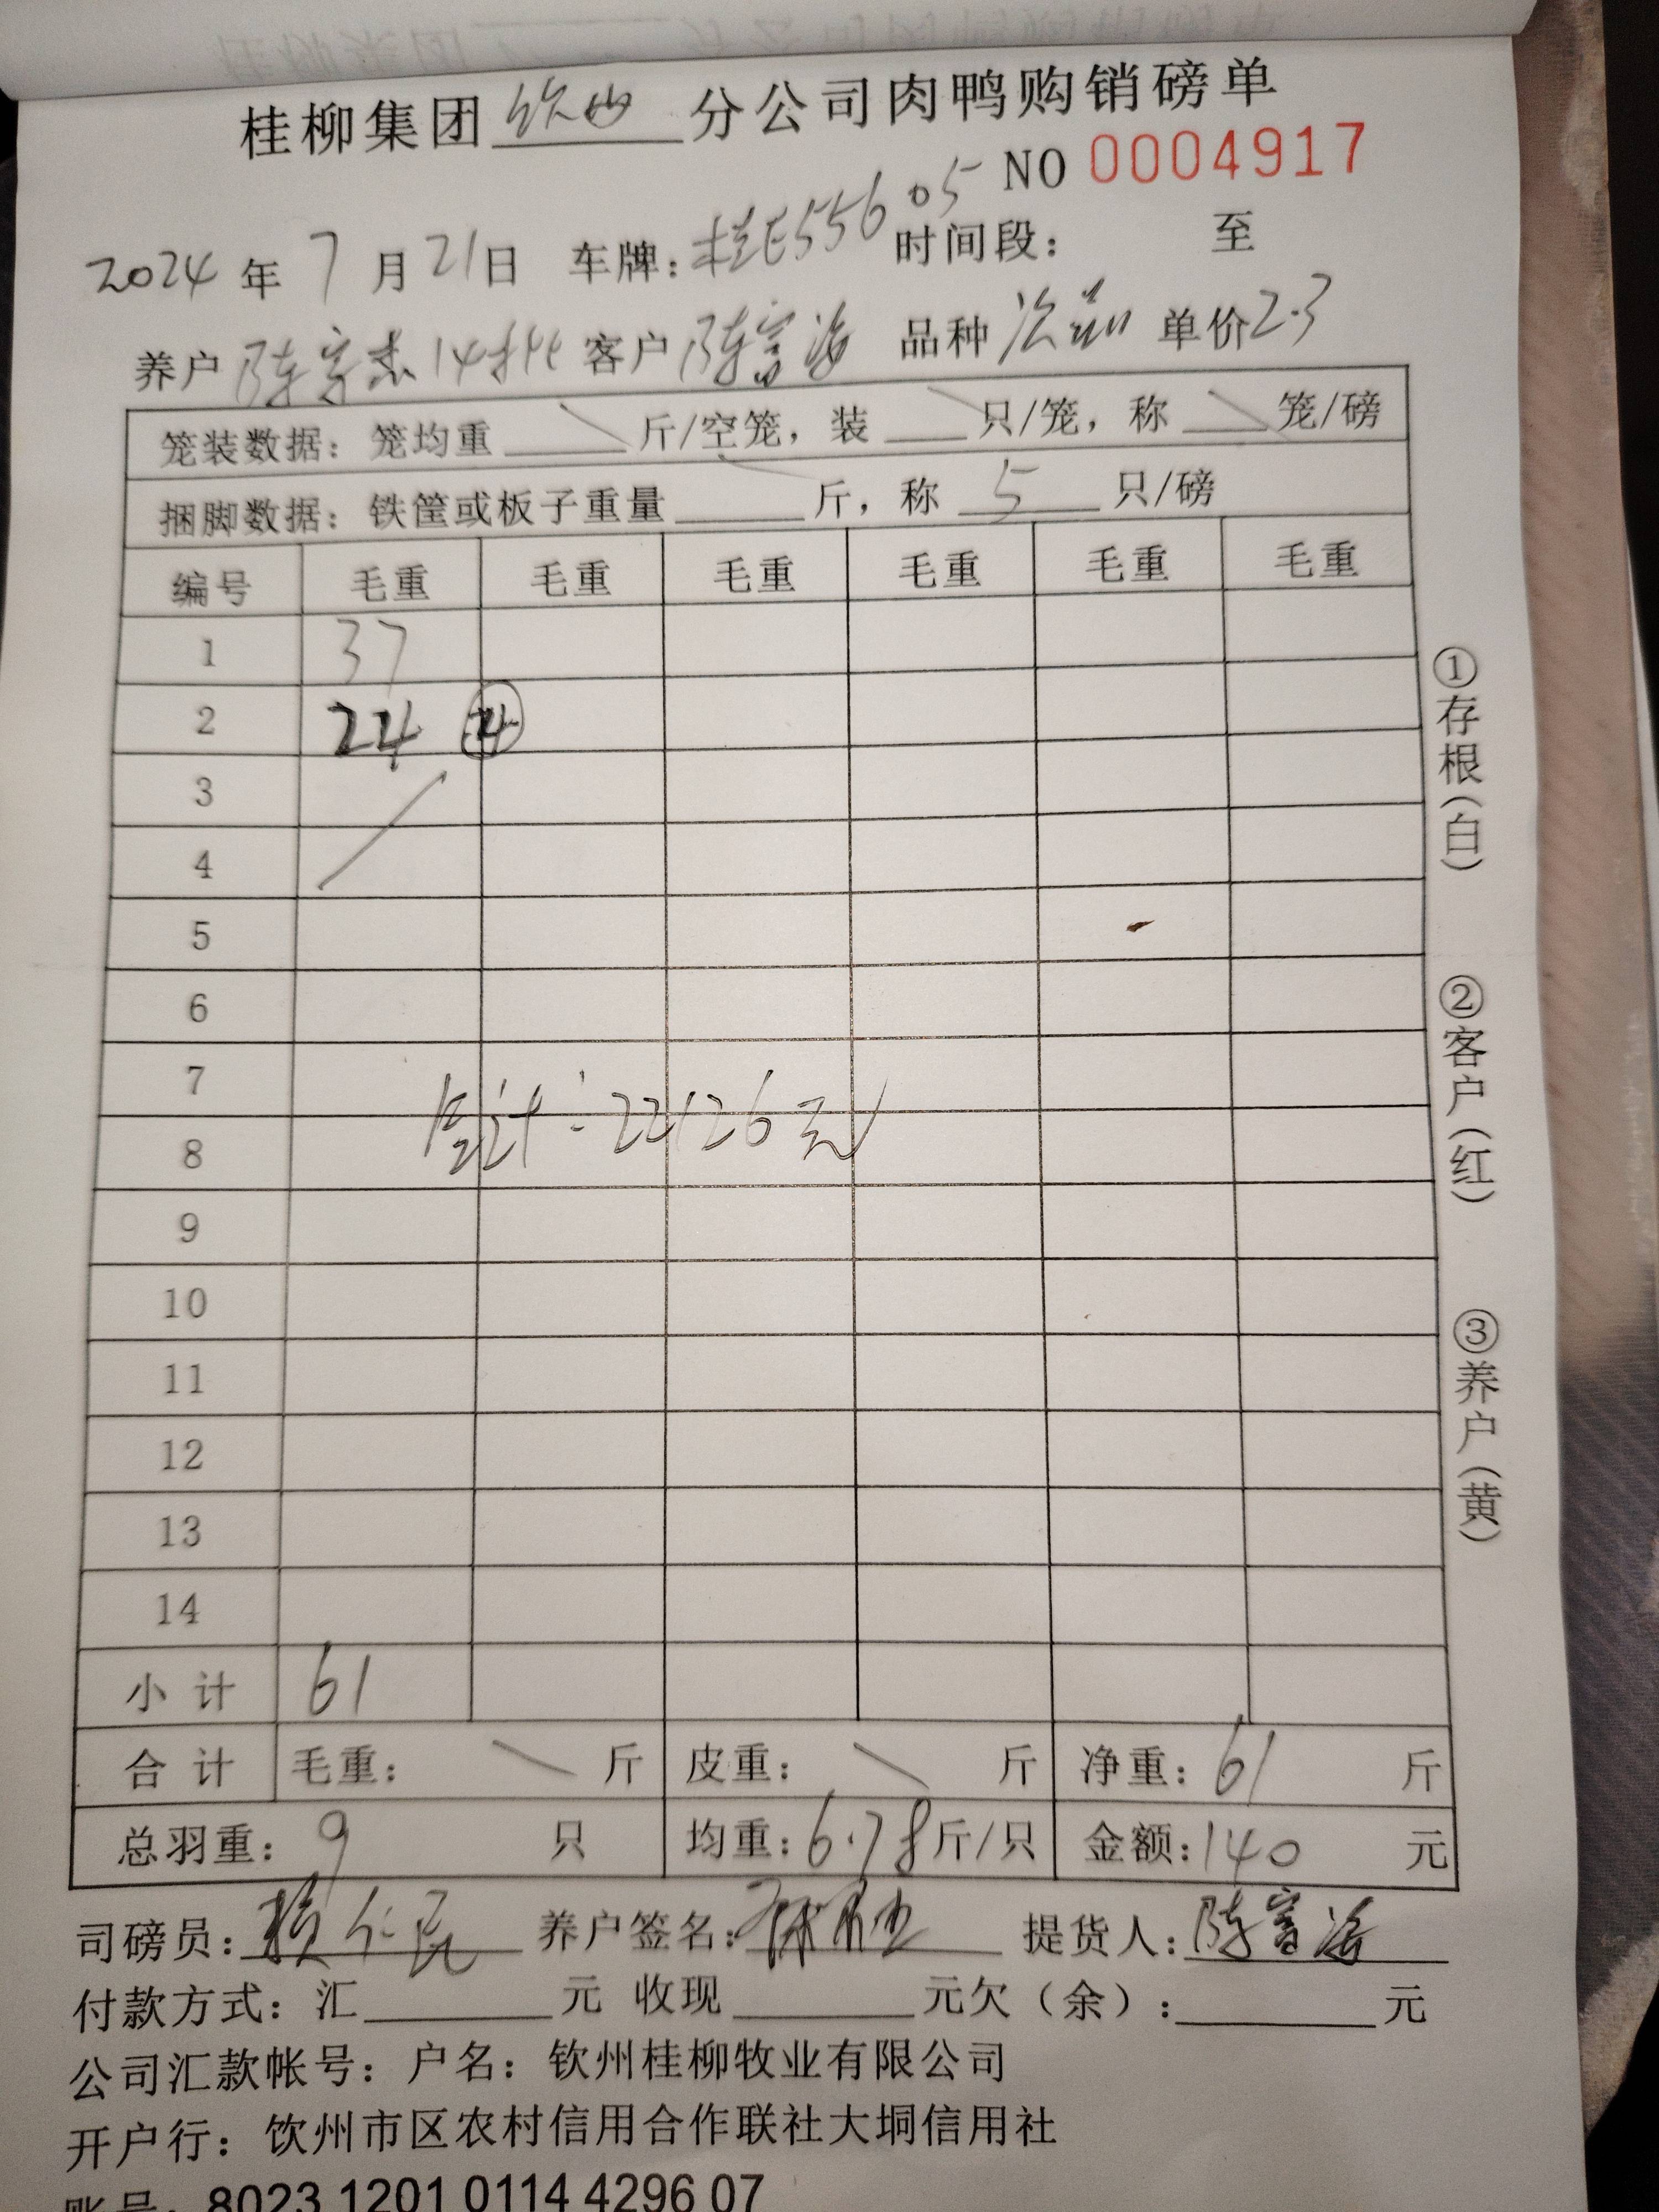 桂柳集团 钦州 分公司肉鸭购销磅单
NO 0004917
2024 年 7 月 21 日 车牌: 桂E55605 时间段: 至
养户 陈富杰14批 客户 陈富海 品种 次品 单价 2.3
笼装数据: 笼均重 斤/空笼, 装 只/笼, 称 笼/磅
捆脚数据: 铁筐或板子重量 斤, 称 5 只/磅
编号 毛重 毛重 毛重 毛重 毛重 毛重
1 37
2 24 ④
3
4
5
6
7
总计: 22126元
8
9
10
11
12
13
14
小计 61
合计 毛重: 斤 皮重: 斤 净重: 61 斤
总羽重: 9 只 均重: 6.78 斤/只 金额: 140 元
司磅员: 仁民 养户签名: 提货人: 陈富海
付款方式: 汇 元 收现 元欠(余): 元
公司汇款帐号: 户名: 钦州桂柳牧业有限公司
开户行: 饮州市区农村信用合作联社大垌信用社
账号: 8023 1201 0114 4296 07
①存根(白)
②客户(红)
③养户(黄)